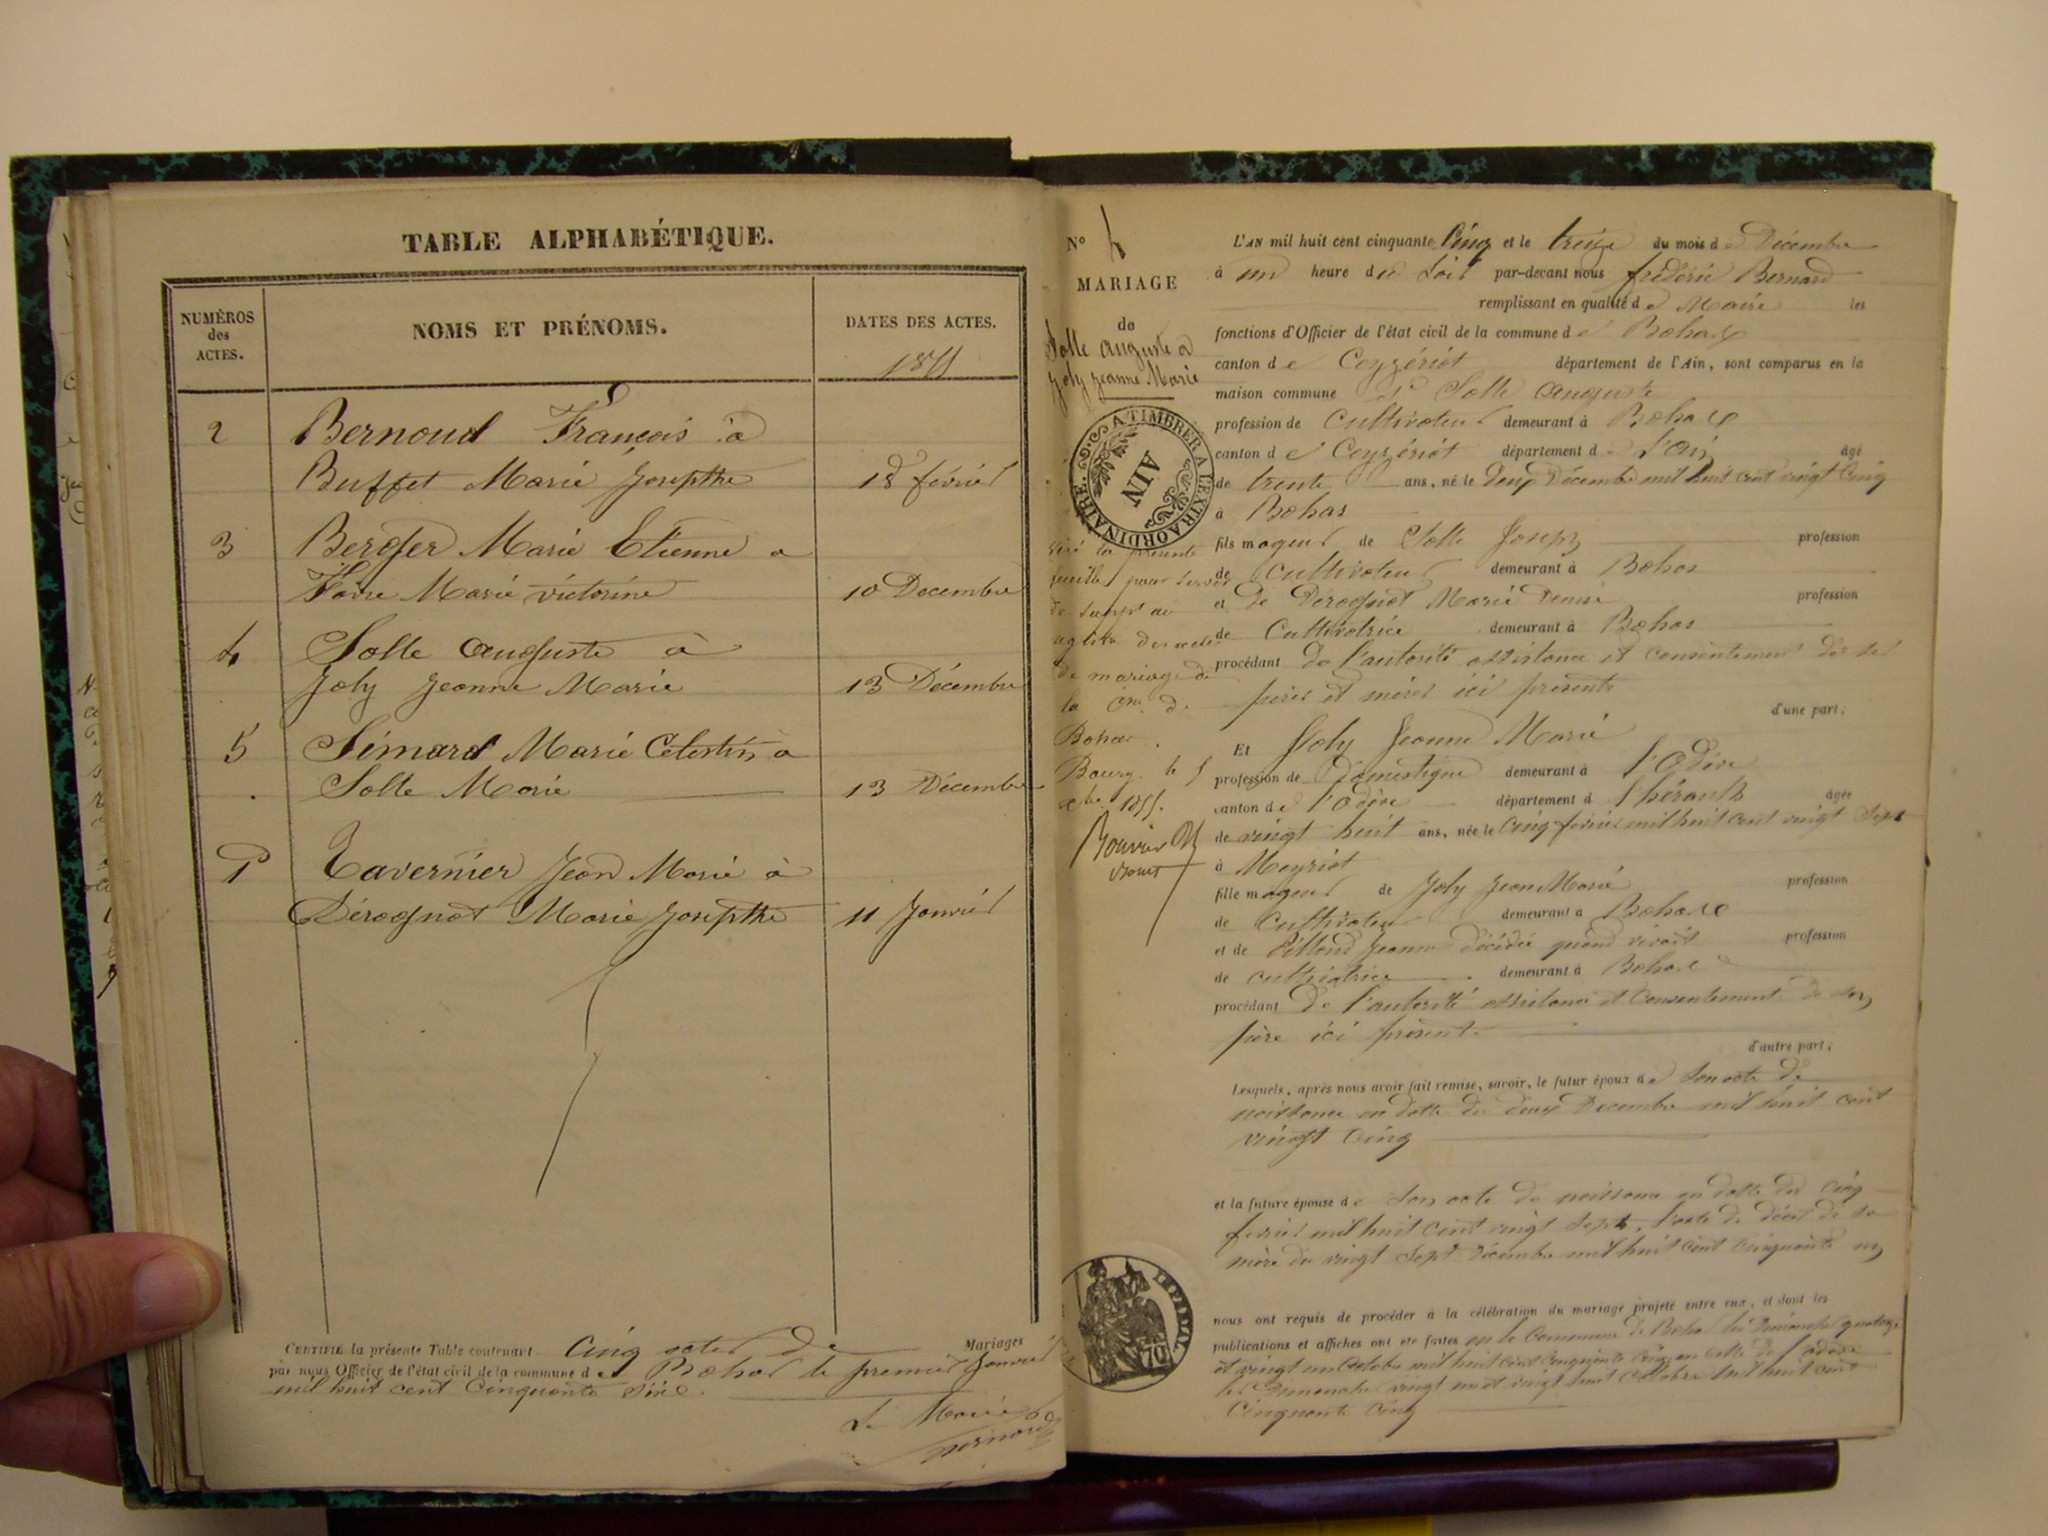 TABLE ALPHABÉTIQUE.
NUMÉROS des ACTES.
NOMS ET PRÉNOMS.
DATES DES ACTES.
1855
2 Bernoud François à
Buffet Marie Josepthe 18 février
3 Berger Marie Etienne a
Favre Marie victorine 10 Decembre
4 Solle auguste à
Joly Jeanne Marie 13 Décembre
5 Simard Marie Celestin a
Solle Marie 13 Décembre
1 Tavernier Jean Marie à
Dérognat Marie Josepthe 11 Janvier
CERTIFIE la présente Table contenant Cinq actes de Mariages
par nous Officier de l'état civil de la commune de Bohas le premier Janvier
mil huit cent Cinquante Sixe.
Le Maire
Bernard
N° 4
MARIAGE
de
Solle auguste a
Joly Jeanne Marie
A TIMBRER A L'EXTRAORDINAIRE.
AIN
Visé la présente
feuille pour servir
de suppt au
registre des actes
de mariage de
la Cne de
Bohas.
Bourg le 5
Xbre 1855.
L'AN mil huit cent cinquante Cinq et le treize du mois de Décembre
à une heure du Soir par-devant nous frédéric Bernard
remplissant en qualité de Maire les
fonctions d'Officier de l'état civil de la commune de Bohas
canton de Ceyzériat département de l'Ain, sont comparus en la
maison commune Sr Solle auguste
profession de Cultivateur demeurant à Bohas
canton de Ceyzériat département de l'Ain âgé
de trente ans, né le Deux Décembre mil huit cent vingt Cinq
à Bohas
fils mageur de Solle Joseph profession
de Cultivateur demeurant à Bohas
et de Dérognat Marie Denise profession
de Cultivatrice demeurant à Bohas
procédant De l'autorité assistance et consentement de ses
pères et mères ici présents
d'une part;
Et Joly Jeanne Marie
profession de Domestique demeurant à l'Odève
canton de l'Odève département d l'hérault âgée
de vingt huit ans, née le Cinq fevrier mil huit cent vingt Sept
à Meyriat
fille mageur de Joly Jean Marie profession
de Cultivateur demeurant à Bohas
et de Pilloud Jeanne décédée quand vivait profession
de cultivatrice demeurant à Bohas
procédant De l'autorité assistance et Consentement de son
père ici présent
d'autre part;
Lesquels, après nous avoir fait remise, savoir, le futur époux de Son acte de
naissance en datte du deux Decembre mil huit cent
vingt Cinq
et la future épouse de Son acte de naissance en datte du cinq
fevrier mil huit cent vingt Sept, l'acte de décès de sa
mère du vingt Sept Décembre mil huit cent Cinquante un
nous ont requis de procéder à la célébration du mariage projeté entre eux, et dont les
publications et affiches ont été faites en la Commune de Bohas les Dimanches quatorze
et vingt un octobre mil huit cent Cinquante Cinq en celle de l'odève
les Dimanches vingt un et vingt huit octobre mil huit cent
Cinquante Cinq
70